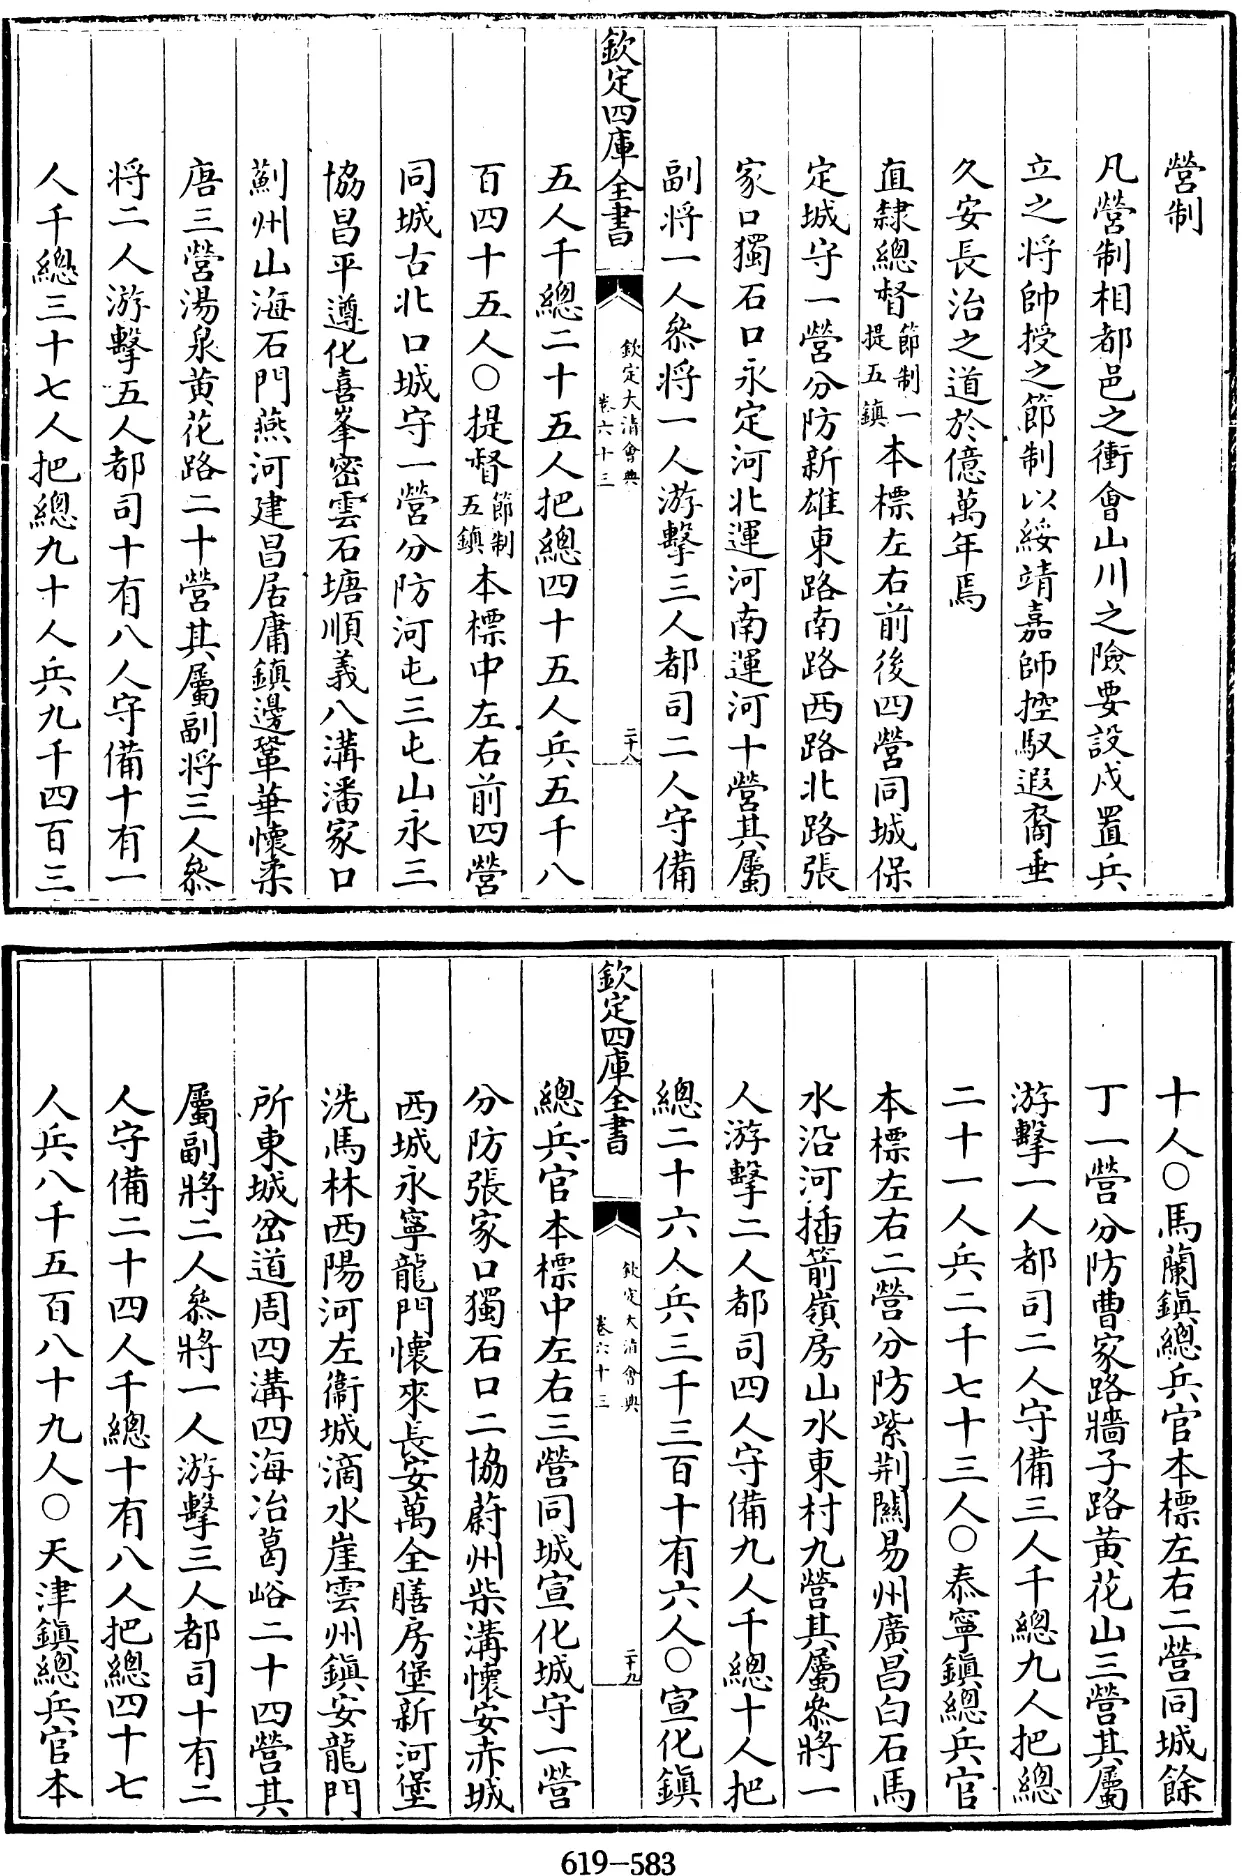 營制
凡營制相都邑之衝會山川之險要設戍置兵
立之將帥授之節制以綏靖嘉師控馭遐裔垂
久安長治之道於億萬年焉
直隸總督節制一提五鎮本標左右前後四營同城保
定城守一營分防新雄東路南路西路北路張
家口獨石口永定河北運河南運河十營其屬
副將一人叅將一人游擊三人都司二人守備
欽定四庫全書
欽定大清會典
卷六十三
二十八
五人千總二十五人把總四十五人兵五千八
百四十五人○提督節制五鎮本標中左右前四營
同城古北口城守一營分防河屯三屯山永三
協昌平遵化喜峯密雲石塘順義八溝潘家口
薊州山海石門燕河建昌居庸鎮邊鞏華懷柔
唐三營湯泉黄花路二十營其屬副將三人叅
將二人游擊五人都司十有八人守備十有一
人千總三十七人把總九十人兵九千四百三
十人○馬蘭鎮總兵官本標左右二營同城餘
丁一營分防曹家路牆子路黄花山三營其屬
游擊一人都司二人守備三人千總九人把總
二十一人兵二千七十三人○泰寧鎮總兵官
本標左右二營分防紫荆關易州廣昌白石馬
水沿河插箭嶺房山水東村九營其屬叅將一
人游擊二人都司四人守備九人千總十人把
總二十六人兵三千三百十有六人○宣化鎮
欽定四庫全書
欽定大清會典
卷六十三
二十九
總兵官本標中左右三營同城宣化城守一營
分防張家口獨石口二協蔚州柴溝懷安赤城
西城永寧龍門懷來長安萬全膳房堡新河堡
洗馬林西陽河左衞城滴水崖雲州鎮安龍門
所東城岔道周四溝四海冶葛峪二十四營其
屬副將二人叅將一人游擊三人都司十有二
人守備二十四人千總十有八人把總四十七
人兵八千五百八十九人○天津鎮總兵官本
619-583